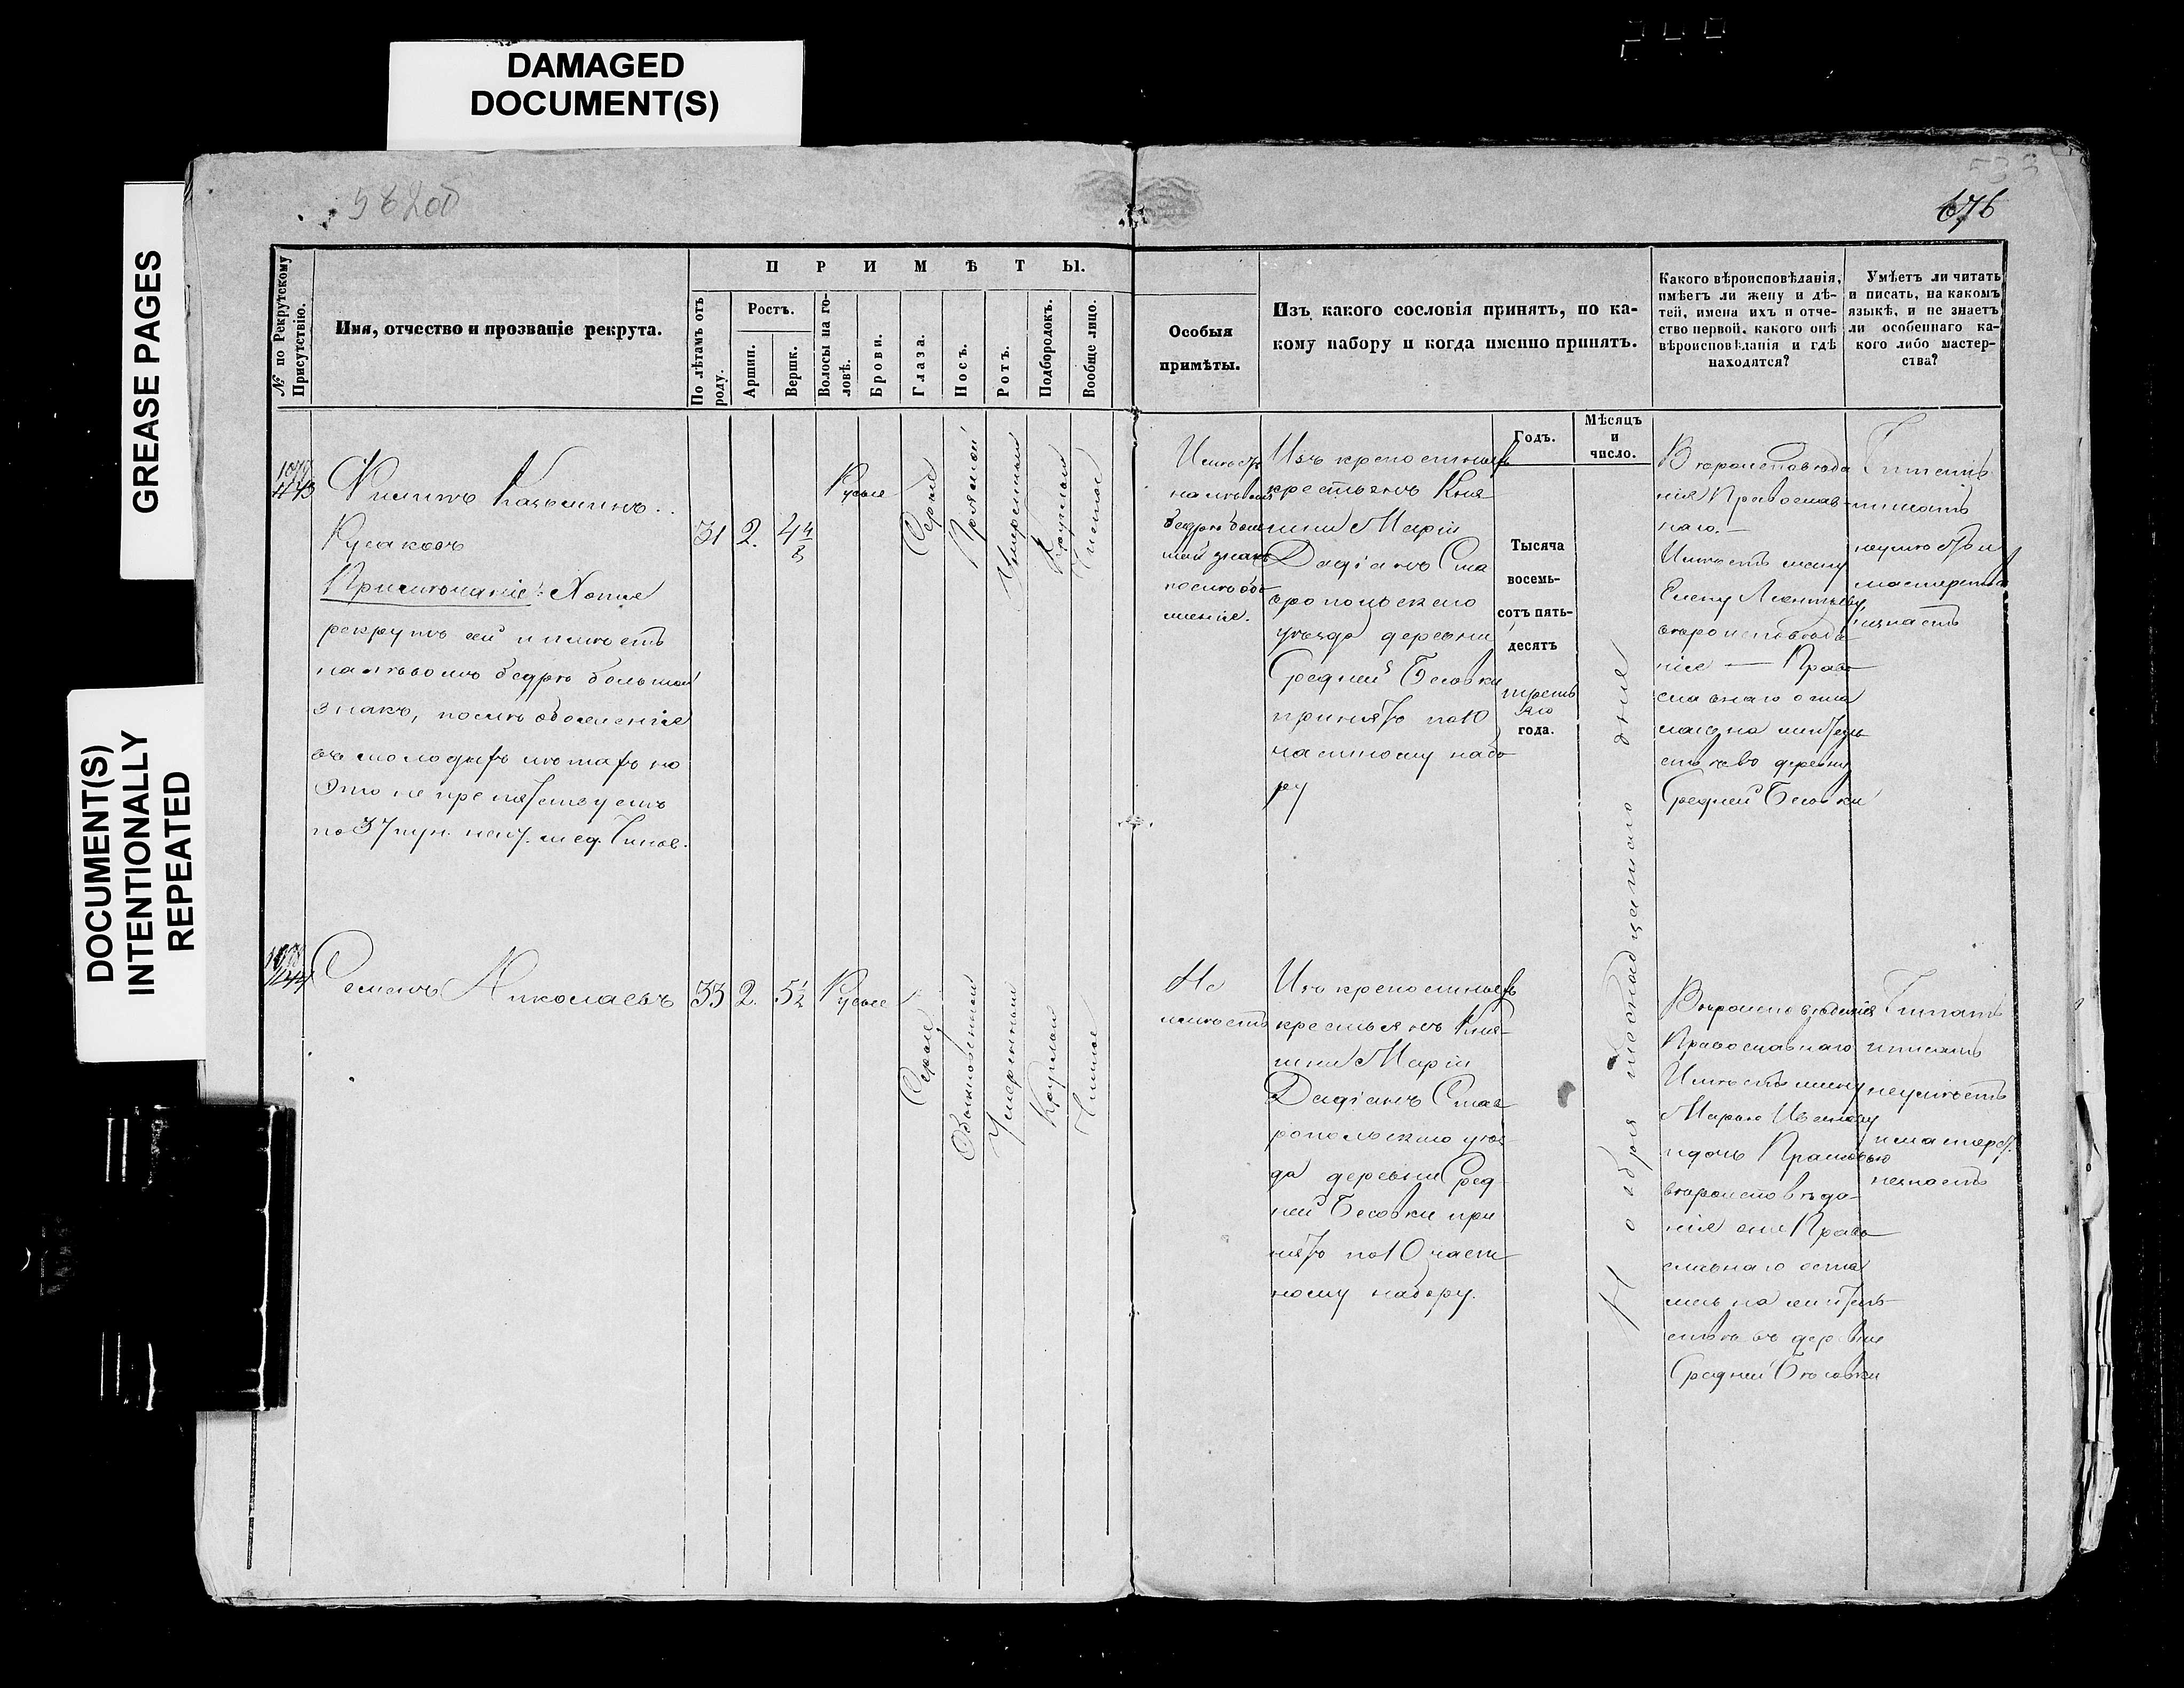 DAMAGED
DOCUMENT(S)
GREASE PAGES
DOCUMENT(S)
INTENTIONALLY
REPEATED
676
№ по Рекрутскому
Присутствію.
Имя, отчество и прозваніе рекрута.
ПРИМѢТЫ.
По лѣтамъ отъ
роду.
Ростъ.
Аршин.
Вершк.
Волосы на го-
ловѣ.
Брови.
Глаза.
Носъ.
Ротъ.
Подбородокъ.
Вообще лицо.
Особыя
примѣты.
Изъ какого сословія принятъ, по ка-
кому набору и когда именно принятъ.
Какого вѣроисповѣданія,
имѣетъ ли жену и дѣ-
тей, имена ихъ и отче-
ство первой, какого онѣ
вѣроисповѣданія и гдѣ
находятся?
Умѣетъ ли читать
и писать, на какомъ
языкѣ, и не знаетъ
ли особеннаго ка-
кого либо мастер-
ства?
Годъ.
Мѣсяцъ
и
число.
Филипъ Казьминъ
Русаковъ
Примѣчаніе: Хотя
рекрутъ сей и имѣетъ
на лѣвомъ бедрѣ большой
знакъ, послѣ обожженія
въ молодыхъ лѣтахъ но
это не препятствуетъ
по 37 пун. наст. мед. Чинов.
31
2.
4 4/8
Русые
Серые
Прямой
Умеренный
Круглый
Чистое
Имѣетъ
на лѣвомъ
бедрѣ боль
шой знакъ
послѣ обо
жженія.
Изъ крепостныхъ
крестьянъ Кня
гини Маріи
Дадіанъ Ста
вропольскаго
уѣзда деревни
Средней Бесовки
принятъ по 10
частному набо
ру
Тысяча
восемь-
сотъ пять-
десятъ
третьяго
года.
Ноября шестнадцатого дня
Вѣроисповѣда
нія Православ-
наго.
Имѣетъ жену
Елену Леонтьеву,
вѣроисповѣда
нія — Право
славнаго оста
лась на житель
ствѣ въ деревни
Средней Бесовки
Читать
писать
неумѣетъ и
мастерства
незнаетъ
Семенъ Николаевъ
33
2.
5 1/2
Русые
Серые
Обыкновенный
Умеренный
Круглый
Чистое
Не
имѣетъ
Изъ крепостныхъ
крестьянъ Кня-
гини Маріи
Дадіанъ Став
ропольскаго уѣз-
да деревни Сред
ней Бесовки при
нятъ по 10 част
ному набору.
Вѣроисповѣданія
Православнаго
Имѣетъ жену
Марью Иванову
и дочь Прасковью
вѣроисповѣда-
нія они Право
славнаго оста
лись на житель
ствѣ въ деревне
Средней Бѣсовки
Читать
писать
неумѣетъ
и мастерст.
незнаетъ